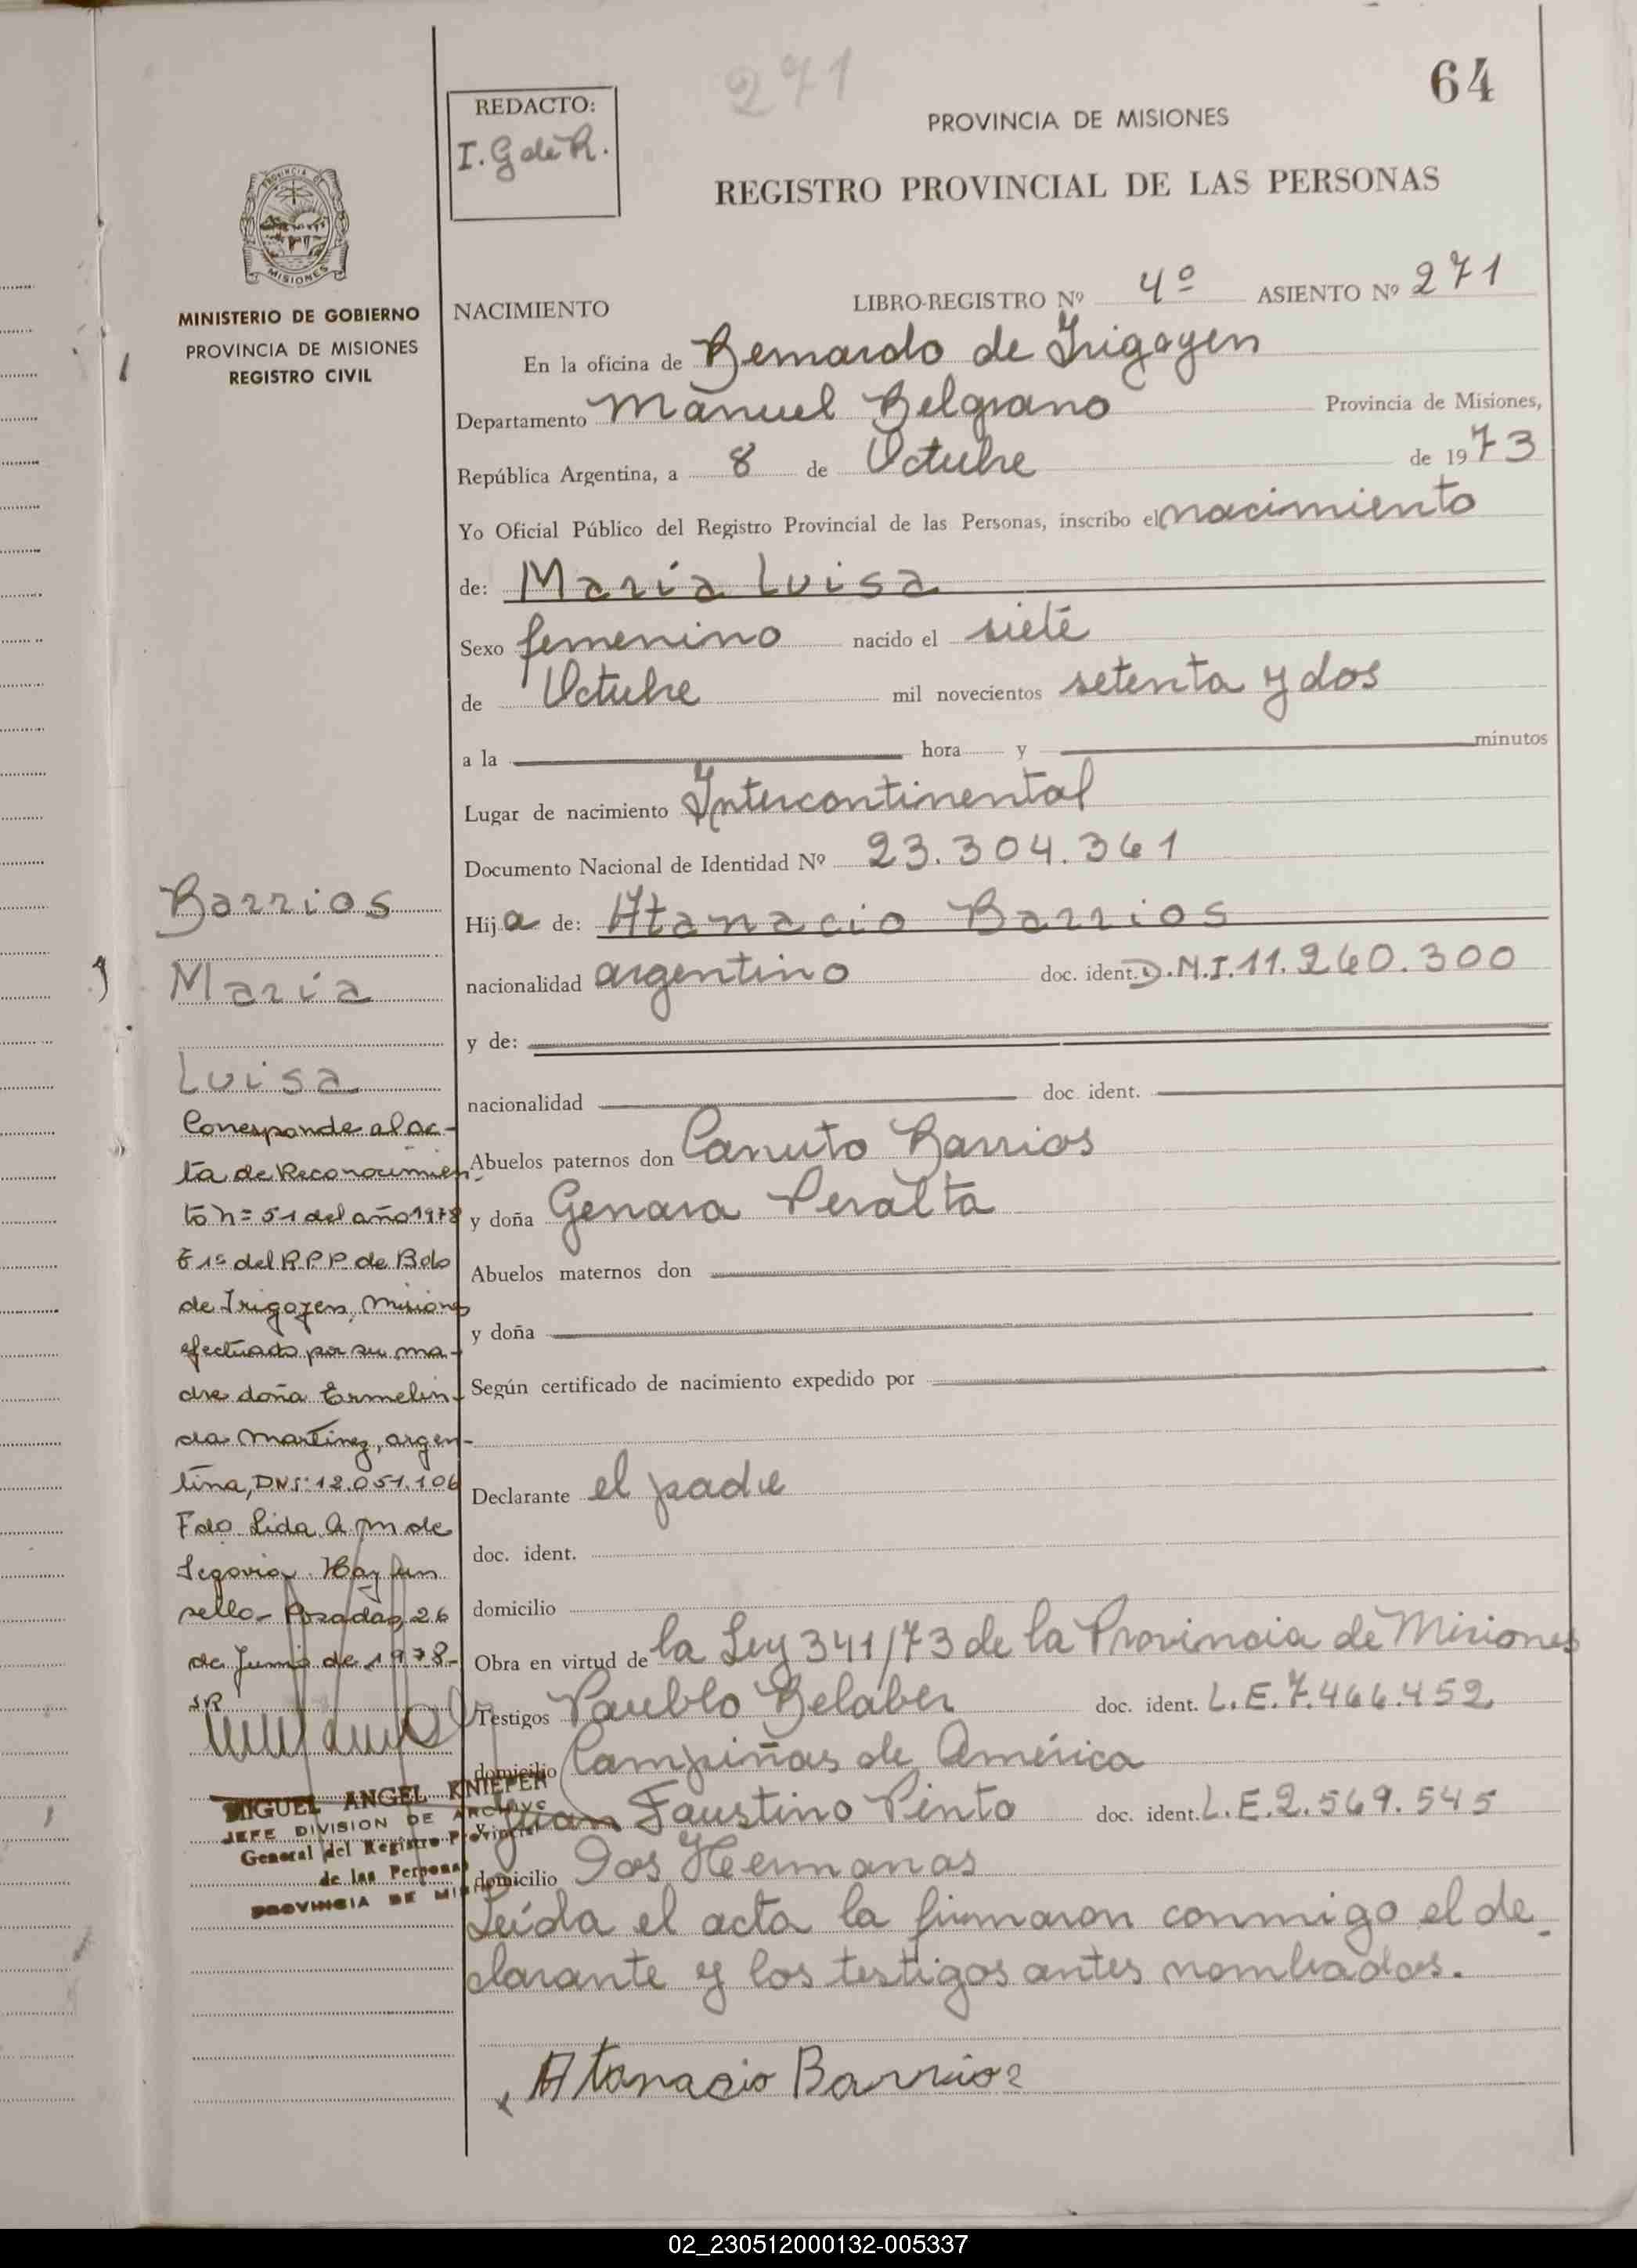 271
64
REDACTO:
I. G de R.
PROVINCIA DE MISIONES
REGISTRO PROVINCIAL DE LAS PERSONAS
PROVINCIA DE
MISIONES
MINISTERIO DE GOBIERNO
PROVINCIA DE MISIONES
REGISTRO CIVIL
NACIMIENTO LIBRO-REGISTRO Nº 4º ASIENTO Nº 271
En la oficina de Bernardo de Irigoyen
Departamento Manuel Belgrano Provincia de Misiones,
República Argentina, a 8 de Octubre de 1973
Yo Oficial Público del Registro Provincial de las Personas, inscribo el nacimiento
de: María Luisa
Sexo femenino nacido el siete
de Octubre mil novecientos setenta y dos
a la hora y minutos
Lugar de nacimiento Intercontinental
Documento Nacional de Identidad Nº 23.304.361
Hija de: Atanacio Barrios
nacionalidad argentino doc. ident. D.N.I. 11.260.300
y de:
nacionalidad doc. ident.
Abuelos paternos don Canuto Barrios
y doña Genara Peralta
Abuelos maternos don
y doña
Según certificado de nacimiento expedido por
Declarante el padre
doc. ident.
domicilio
Obra en virtud de la Ley 341/73 de la Provincia de Misiones
Testigos Paublo Belaber doc. ident. L.E. 7.466.452
domicilio Campiñas de América
Juan Faustino Pinto doc. ident. L.E. 2.569.545
domicilio Dos Hermanas
Leída el acta la firmaron conmigo el de-
clarante y los testigos antes nombrados.
Atanacio Barrios
Barrios
María
Luisa
Corresponde al ac-
ta de Reconocimien-
to n= 51 del año 1978
Tº 1º del RPP de Bdo
de Irigoyen, Misiones
efectuado por su ma-
dre doña Ermelin-
da Martínez, argen-
tina, DNI: 12.051.106
Fdo Lida A. M de
Segovia. Hay un
sello- Posadas, 26
de Junio de 1978-
SR
MIGUEL ANGEL KNIEPER
JEFE DIVISION DE ARCHIVO
General del Registro Provincial
de las Personas
PROVINCIA DE MIS
02_230512000132-005337